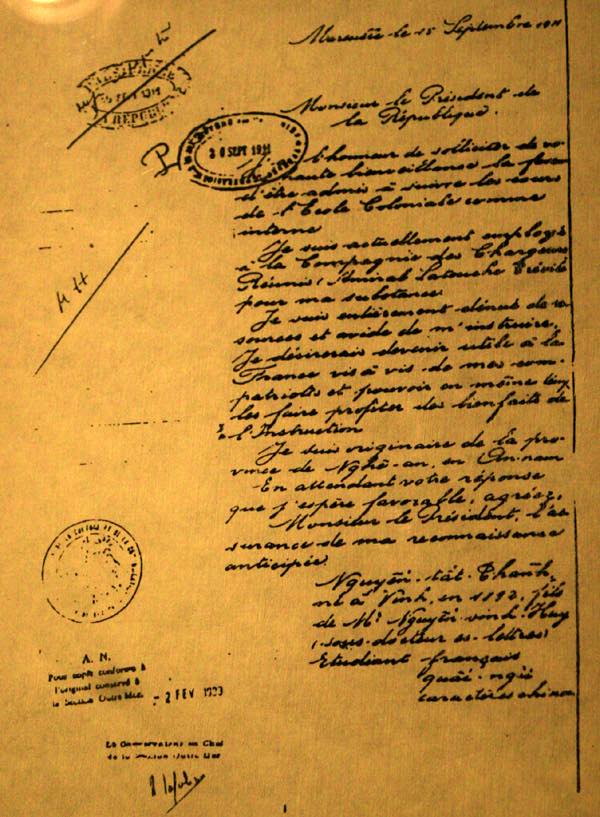 Marseille le 15 Septembre 1911
Monsieur le Président de
la République.
30 SEPT 1911
l'honneur de solliciter de vo-
haute bienveillance la faveur
d'être admis à suivre les cours
de l'Ecole Coloniale comme
interne
Je suis actuellement employé
à la Compagnie des Chargeurs
Réunis, Amiral Latouche Tréville
pour ma subsistance
Je suis entièrement dénué de res-
sources et avide de m'instruire.
Je désirerais devenir utile à la
France vis à vis de mes com-
patriotes et pouvoir en même temps
les faire profiter des bienfaits de
l'Instruction
Je suis originaire de la pro-
vince de Nghê-an, en Annam
En attendant votre réponse
que j'espère favorable, agréez,
Monsieur le Président, l'as-
surance de ma reconnaissance
anticipée.
Nguyễn tất Thanh,
né à Vinh, en 1892, fils
de Mr Nguyễn vinh Huy
(sous-docteur ès-lettres)
Etudiant français
quốc-ngũ
caractères chinois
A. N.
Pour copie conforme à
l'original conservé à
la Section Outre-Mer
- 2 FEV
Le Conservateur en Chef
de la Section Outre Mer